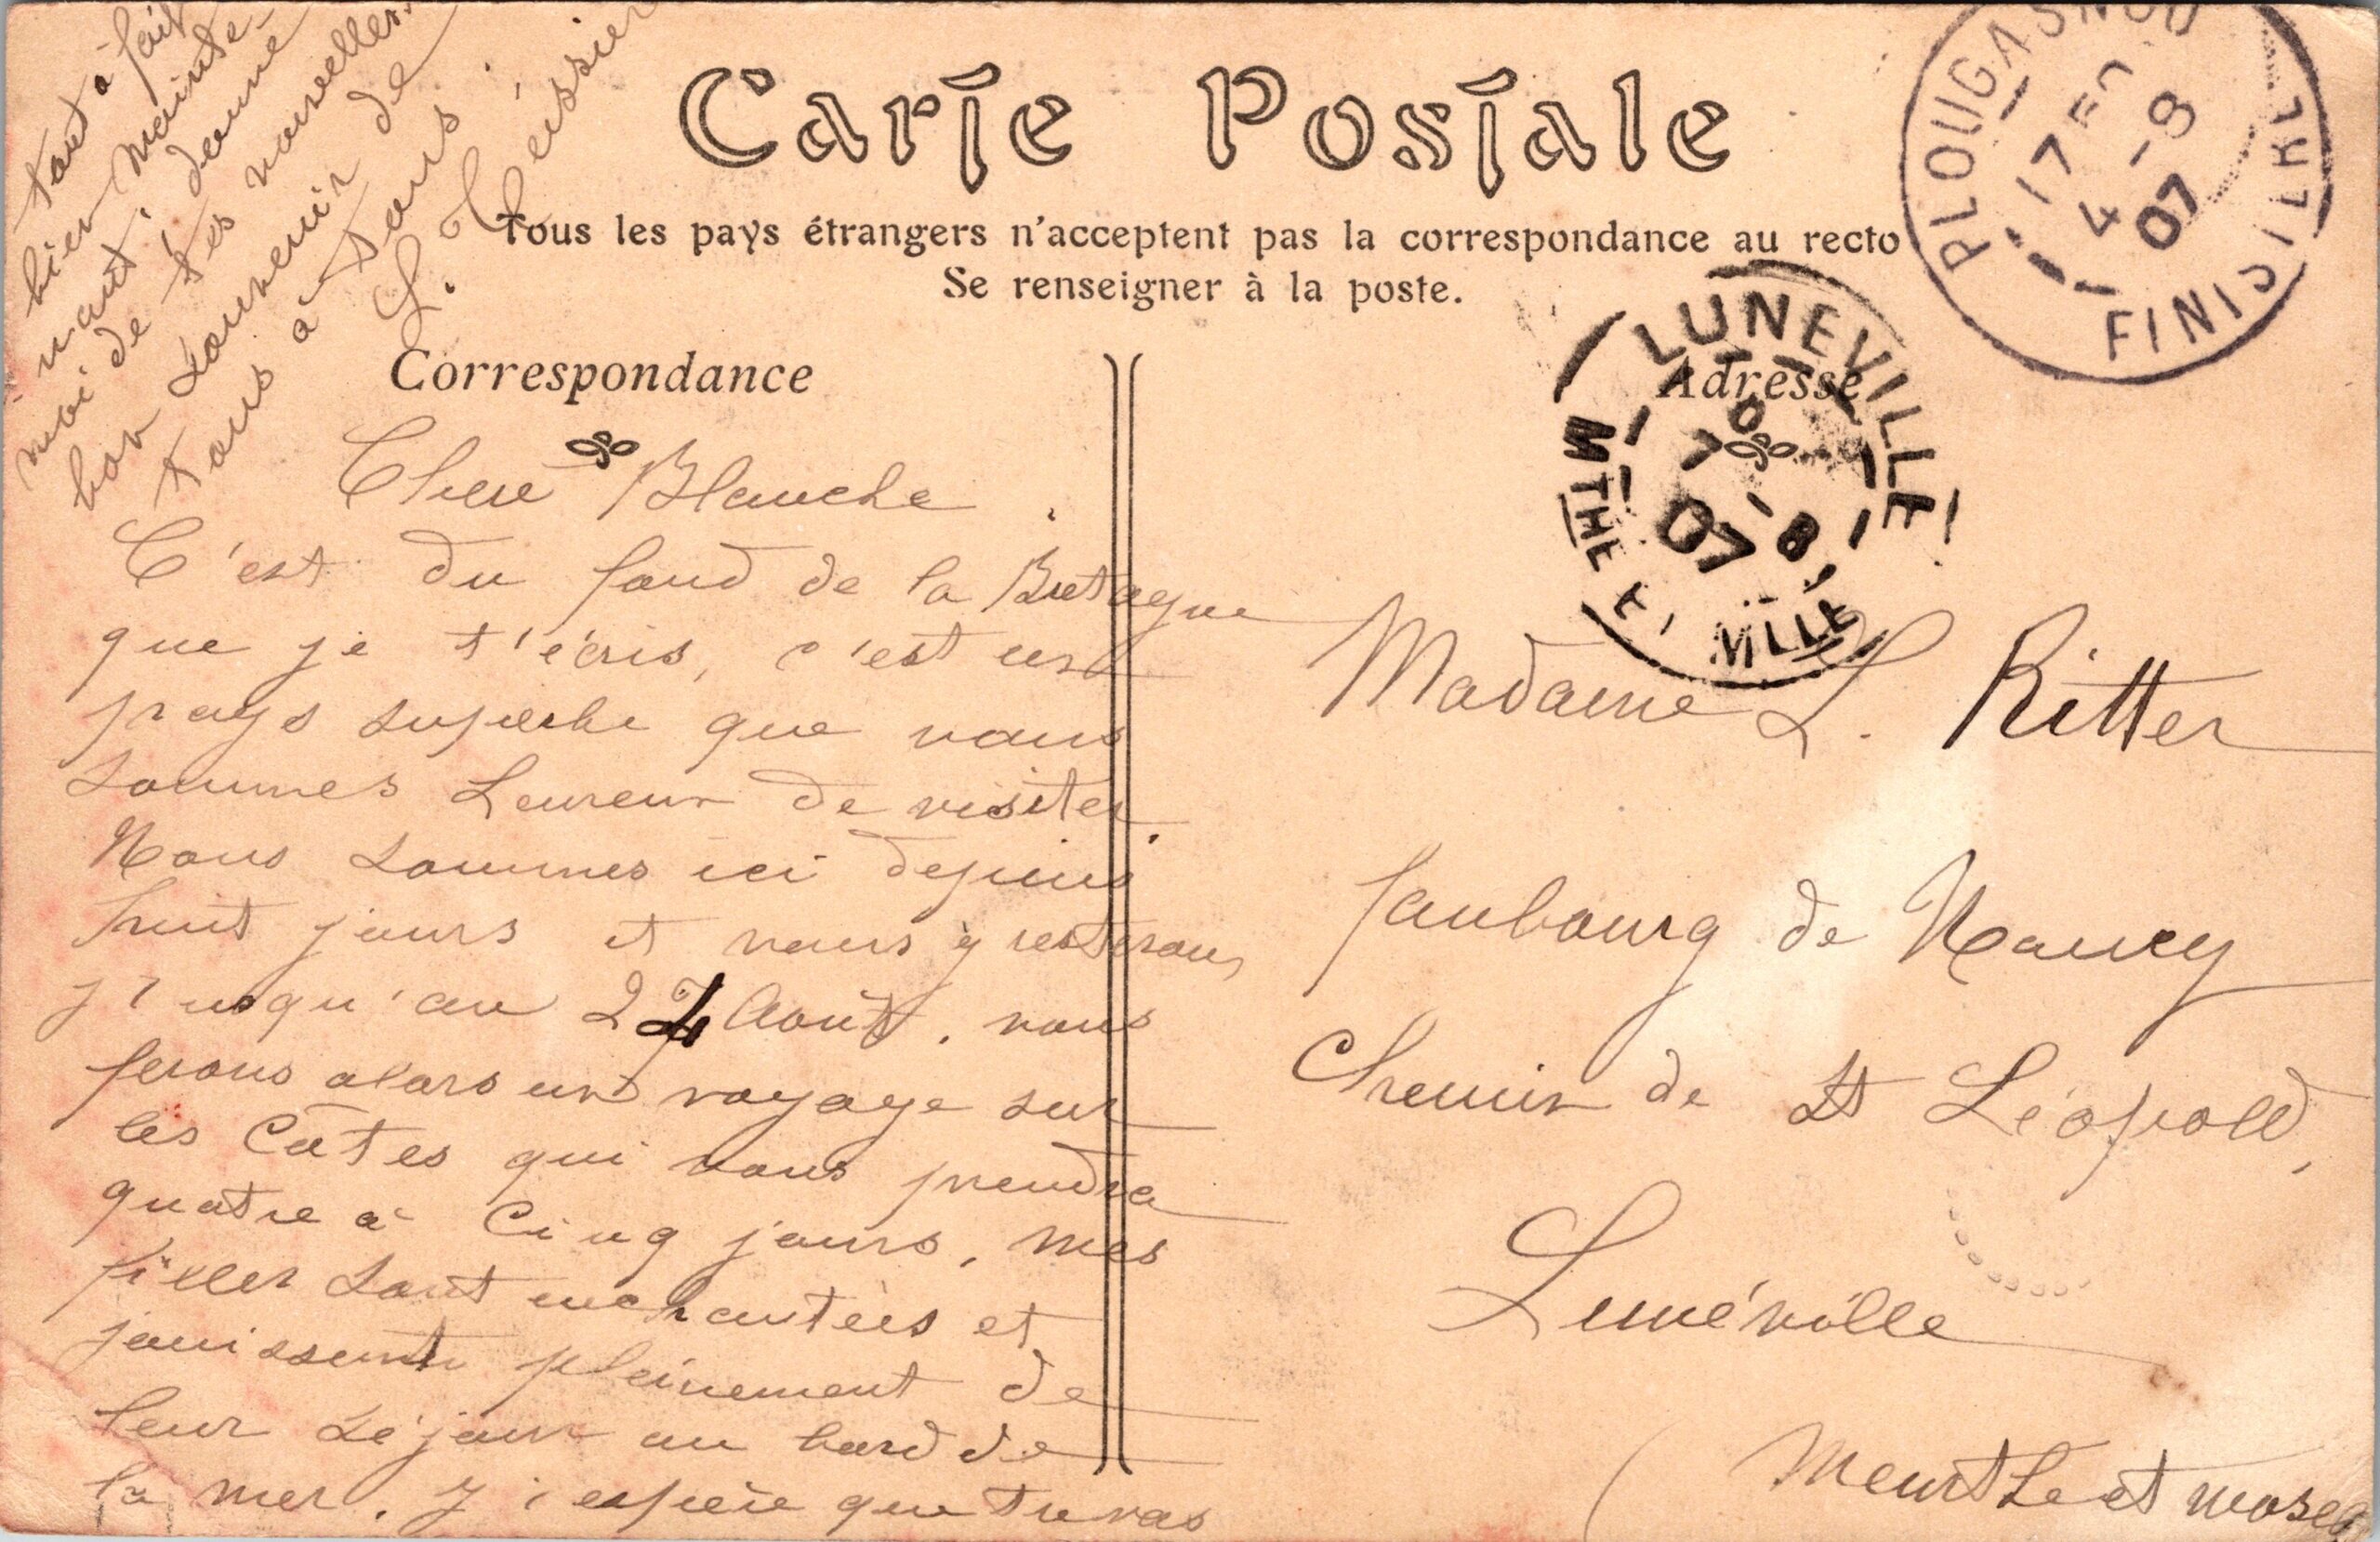 Carte Postale
Tous les pays étrangers n'acceptent pas la correspondance au recto
Se renseigner à la poste.
Correspondance
Adresse
Chère Blanche
C'est du fond de la Bretagne
que je t'écris, c'est un
pays superbe que nous
sommes heureux de visiter.
Nous sommes ici depuis
huit jours et nous y resterons
jusqu'au 24 Août. nous
ferons alors un voyage sur
les Côtes qui nous prendra
quatre à Cinq jours, mes
filles sont enchantées et
jouissent pleinement de
leur séjour au bord de
la mer. J'espère que tu vas
tout à fait
bien mainte-
nant, donne
moi de tes nouvelles.
bon souvenir de
tous à tous.
L.
Madame L. Ritter
faubourg de Nancy
Chemin de St Léopold,
Lunéville
(Meurthe et Mosel
PLOUGASNOU
17
4-8
07
FINISTERE
LUNEVILLE
7-8
07
MTHE ET MLLE